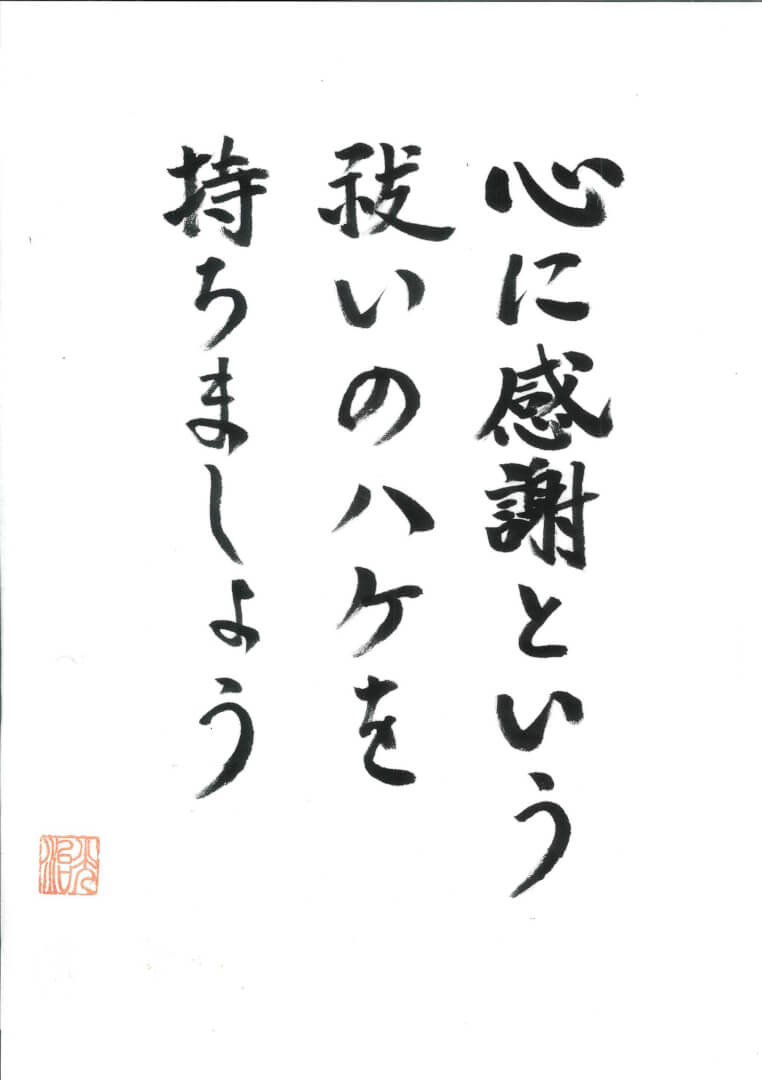 心に感謝という
祓いのハケを
持ちましょう